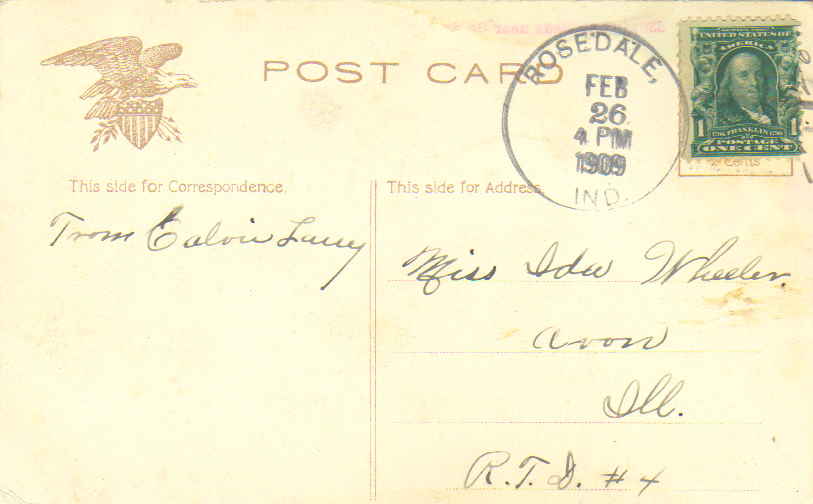 POST CARD
ROSEDALE,
FEB
26
4 PM
1909
IND.
UNITED STATES OF
AMERICA
1 FRANKLIN 1
POSTAGE
ONE CENT
Cents
This side for Correspondence.
This side for Address.
From Calvin
Miss Ida Wheeler.
Avon
Ill.
R.F.D. #4